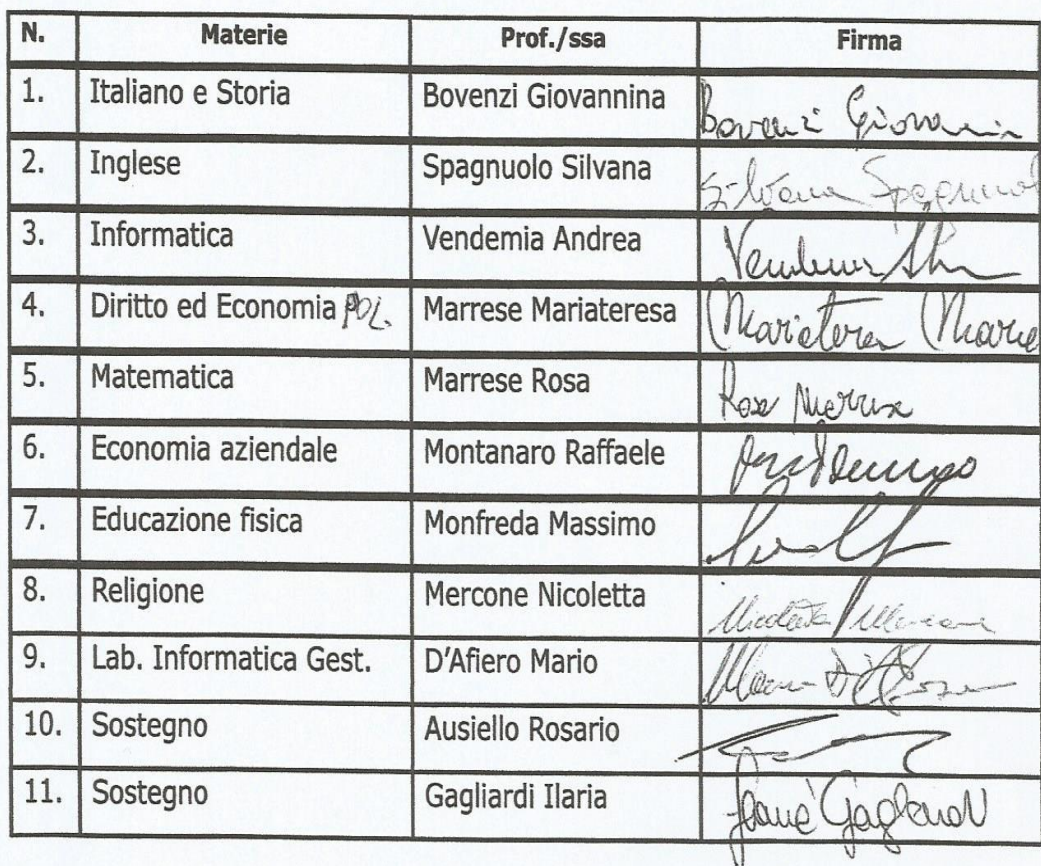 N. Materie Prof./ssa Firma
1. Italiano e Storia Bovenzi Giovannina Bovenzi Giovannin
2. Inglese Spagnuolo Silvana Silvana Spagnuol
3. Informatica Vendemia Andrea
4. Diritto ed Economia POL. Marrese Mariateresa
5. Matematica Marrese Rosa Rosa Marrese
6. Economia aziendale Montanaro Raffaele
7. Educazione fisica Monfreda Massimo
8. Religione Mercone Nicoletta Nicoletta Mercone
9. Lab. Informatica Gest. D'Afiero Mario
10. Sostegno Ausiello Rosario
11. Sostegno Gagliardi Ilaria